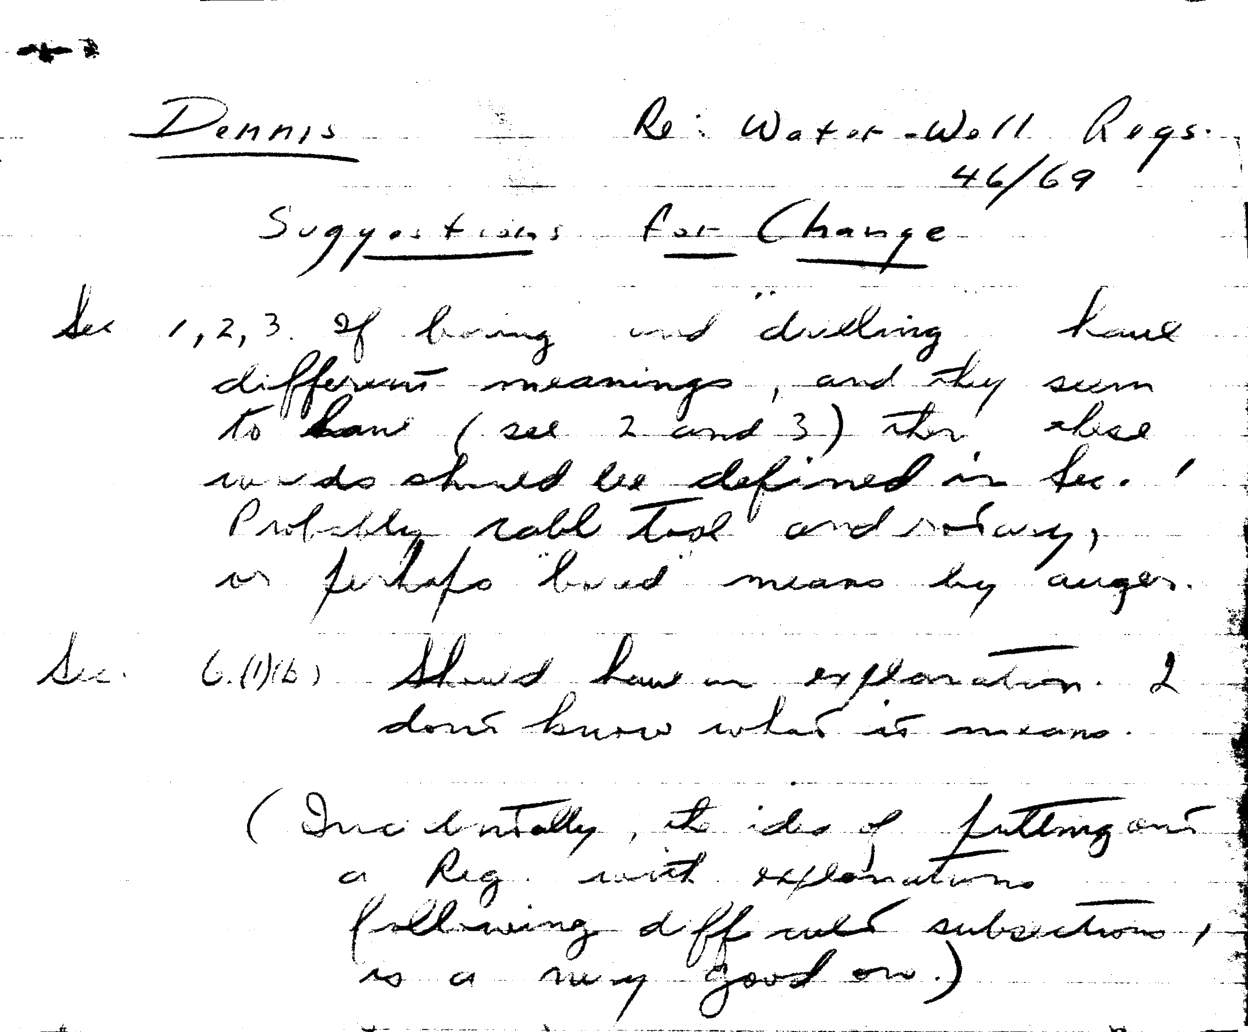 Dennis Re: Water-Well Regs.
46/69
Suggestions for Change
Sec 1, 2, 3. If boring and "drilling have
different meanings, and they seem
to have (see 2 and 3) then these
words should be defined in Sec. 1
Probably cable tool and rotary,
or perhaps "bored" means by auger.
Sec. 6.(1)(b) Should have an explanation. I
don't know what it means.
(Incidentally, the idea of putting out
a Reg. with explanations
following difficult subsections,
is a very good one.)